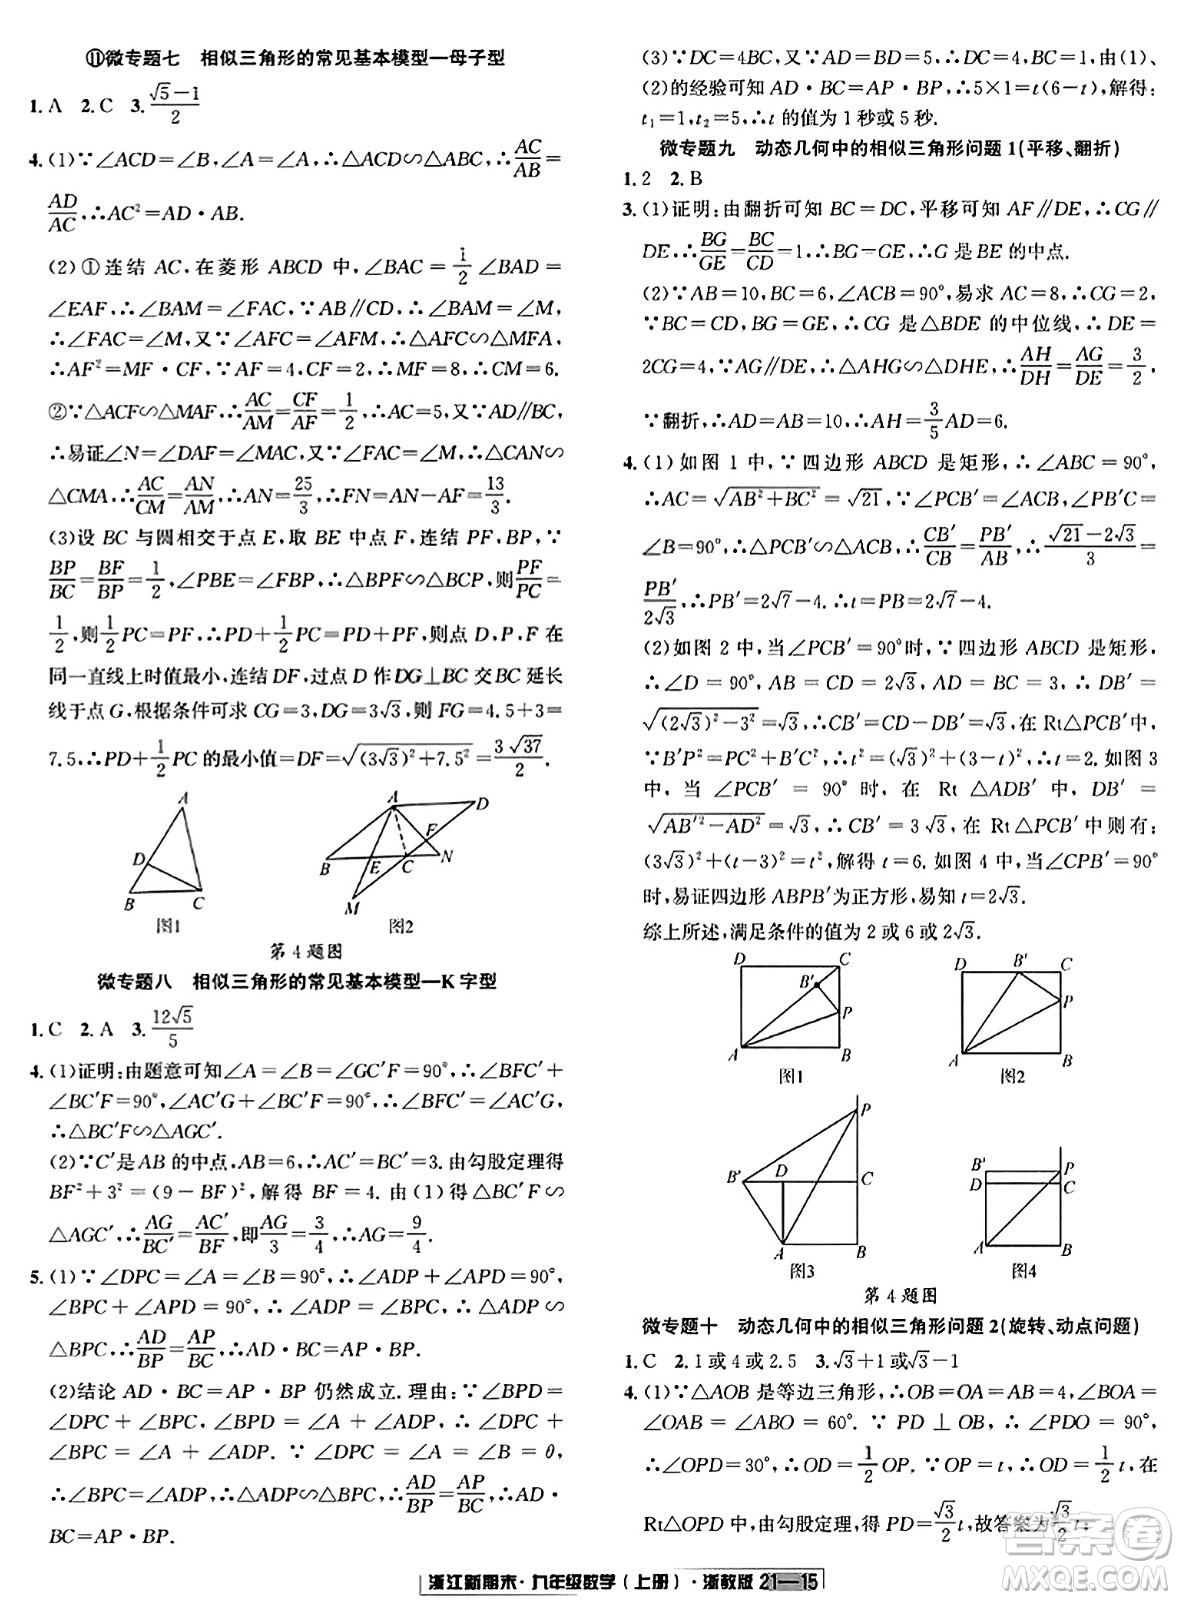 ⑪微专题七 相似三角形的常见基本模型—母子型
1. A 2. C 3. (√5−1)/2
4. (1)∵∠ACD=∠B,∠A=∠A,∴△ACD∽△ABC,∴AC/AB=
AD/AC,∴AC²=AD·AB.
(2)①连结 AC,在菱形 ABCD 中,∠BAC=1/2∠BAD=
∠EAF,∴∠BAM=∠FAC,∵AB∥CD,∴∠BAM=∠M,
∴∠FAC=∠M,又∵∠AFC=∠AFM,∴△AFC∽△MFA,
∴AF²=MF·CF,又∵AF=4,CF=2,∴MF=8,∴CM=6.
②∵△ACF∽△MAF,∴AC/AM=CF/AF=1/2,∴AC=5,又∵AD∥BC,
∴易证∠N=∠DAF=∠MAC,又∵∠ACM=∠CAN,∴△CAN∽
△CMA,∴AC/CM=AN/AM,∴AN=25/3,∴FN=AN−AF=13/3.
(3)设 BC 与圆相交于点 E,取 BE 中点 F,连结 PF,BP,∵
BP/BC=BF/BP=1/2,∠PBE=∠FBP,∴△BPF∽△BCP,则PF/PC=
1/2,则1/2PC=PF,∴PD+1/2PC=PD+PF,则点 D,P,F 在
同一直线上时值最小,连结 DF,过点 D 作 DG⊥BC 交 BC 延长
线于点 G,根据条件可求 CG=3,DG=3√3,则 FG=4.5+3=
7.5,∴PD+1/2PC 的最小值=DF=√((3√3)²+7.5²)=3√37/2.
A
D
B
C
图1
A
D
F
B
E
C
N
M
图2
第 4 题图
微专题八 相似三角形的常见基本模型—K 字型
1. C 2. A 3. 12√5/5
4. (1)证明:由题意可知∠A=∠B=∠GC′F=90°,∴∠BFC′+
∠BC′F=90°,∠AC′G+∠BC′F=90°,∴∠BFC′=∠AC′G,
∴△BC′F∽△AGC′.
(2)∵C′是 AB 的中点,AB=6,∴AC′=BC′=3. 由勾股定理得
BF²+3²=(9−BF)²,解得 BF=4. 由(1)得△BC′F∽
△AGC′,∴AG/BC′=AC′/BF,即AG/3=3/4,∴AG=9/4.
5. (1)∵∠DPC=∠A=∠B=90°,∴∠ADP+∠APD=90°,
∠BPC+∠APD=90°,∴∠ADP=∠BPC,∴△ADP∽
△BPC,∴AD/BP=AP/BC,∴AD·BC=AP·BP.
(2)结论 AD·BC=AP·BP 仍然成立. 理由:∵∠BPD=
∠DPC+∠BPC,∠BPD=∠A+∠ADP,∴∠DPC+
∠BPC=∠A+∠ADP. ∵∠DPC=∠A=∠B=θ,
∴∠BPC=∠ADP,∴△ADP∽△BPC,∴AD/BP=AP/BC,∴AD·
BC=AP·BP.
(3)∵DC=4,AD=BD=5,∴DC=4,∴BC=1,由(1)、
(2)的经验可知 AD·BC=AP·BP,∴5×1=t(6−t),解得:
t₁=1,t₂=5,∴t 的值为 1 秒或 5 秒.
微专题九 动态几何中的相似三角形问题 1(平移、翻折)
1. 2 2. B
3. (1)证明:由翻折可知 BC=DC,平移可知 AF∥DE,∴CG∥
DE,∴BG/GE=BC/CD=1,∴BG=GE,∴G 是 BE 的中点.
(2)∵AB=10,BC=6,∠ACB=90°,易求 AC=8,∴CG=2,
∵BC=CD,BG=GE,∴CG 是△BDE 的中位线,∴DE=
2CG=4,∵AG∥DE,∴△AHG∽△DHE,∴AH/DH=AG/DE=3/2,
∵翻折,∴AD=AB=10,∴AH=3/5AD=6.
4. (1)如图 1 中,∵四边形 ABCD 是矩形,∴∠ABC=90°,
∴AC=√(AB²+BC²)=√21,∵∠PCB′=∠ACB,∠PB′C=
∠B=90°,∴△PCB′∽△ACB,∴CB′/CB=PB′/AB,∴(√21−2√3)/3=
PB′/2√3,∴PB′=2√7−4,∴t=PB=2√7−4.
(2)如图 2 中,当∠PCB′=90°时,∵四边形 ABCD 是矩形,
∴∠D=90°,AB=CD=2√3,AD=BC=3,∴DB′=
√((2√3)²−3²)=√3,∴CB′=CD−DB′=√3,在 Rt△PCB′中,
∵B′P²=PC²+B′C²,∴t²=(√3)²+(3−t)²,∴t=2. 如图 3
中,当∠PCB′=90°时,在 Rt△ADB′中,DB′=
√(AB′²−AD²)=√3,∴CB′=3√3,在 Rt△PCB′中则有:
(3√3)²+(t−3)²=t²,解得 t=6. 如图 4 中,当∠CPB′=90°
时,易证四边形 ABPB′为正方形,易知 t=2√3.
综上所述,满足条件的值为 2 或 6 或 2√3.
D
C
B′
P
A
B
图1
D
B′
C
P
A
B
图2
P
B′
D
C
A
B
图3
B′
P
D
C
A
B
图4
第 4 题图
微专题十 动态几何中的相似三角形问题 2(旋转、动点问题)
1. C 2. 1 或 4 或 2.5 3. √3+1 或√3−1
4. (1)∵△AOB 是等边三角形,∴OB=OA=AB=4,∠BOA=
∠OAB=∠ABO=60°. ∵PD⊥OB,∴∠PDO=90°,
∴∠OPD=30°,∴OD=1/2OP. ∵OP=t,∴OD=1/2t,在
Rt△OPD 中,由勾股定理,得 PD=√3/2t,故答案为√3/2t;
浙江新期末·九年级数学(上册)·浙教版 21—15
答案卷